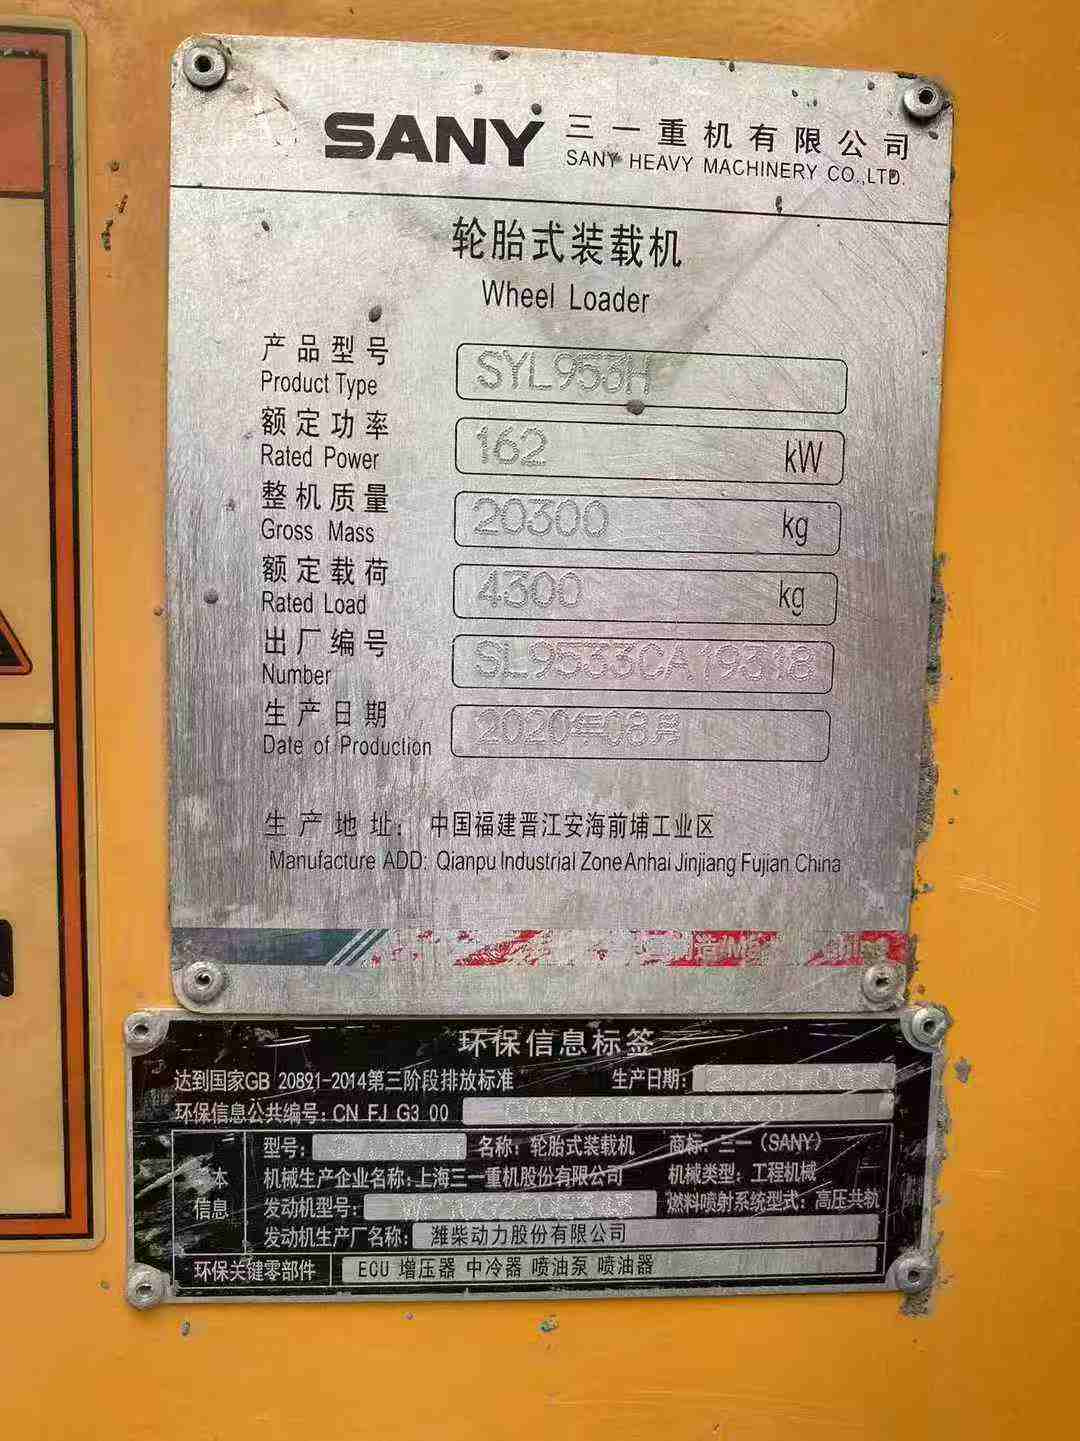 SANY 三一重机有限公司
SANY HEAVY MACHINERY CO.,LTD.
轮胎式装载机
Wheel Loader
产品型号 SYL953H
Product Type
额定功率 162 kW
Rated Power
整机质量 20300 kg
Gross Mass
额定载荷 4300 kg
Rated Load
出厂编号 SL9533CA19318
Number
生产日期 2020年08月
Date of Production
生产地址: 中国福建晋江安海前埔工业区
Manufacture ADD: Qianpu Industrial Zone Anhai Jinjiang Fujian China
环保信息标签
达到国家GB 20891-2014第三阶段排放标准 生产日期:
环保信息公共编号: CN FJ G3 00
型号: 名称: 轮胎式装载机 商标: 三一 (SANY)
本 机械生产企业名称: 上海三一重机股份有限公司 机械类型: 工程机械
信息 发动机型号: 燃料喷射系统型式: 高压共轨
发动机生产厂名称: 潍柴动力股份有限公司
环保关键零部件 ECU 增压器 中冷器 喷油泵 喷油器